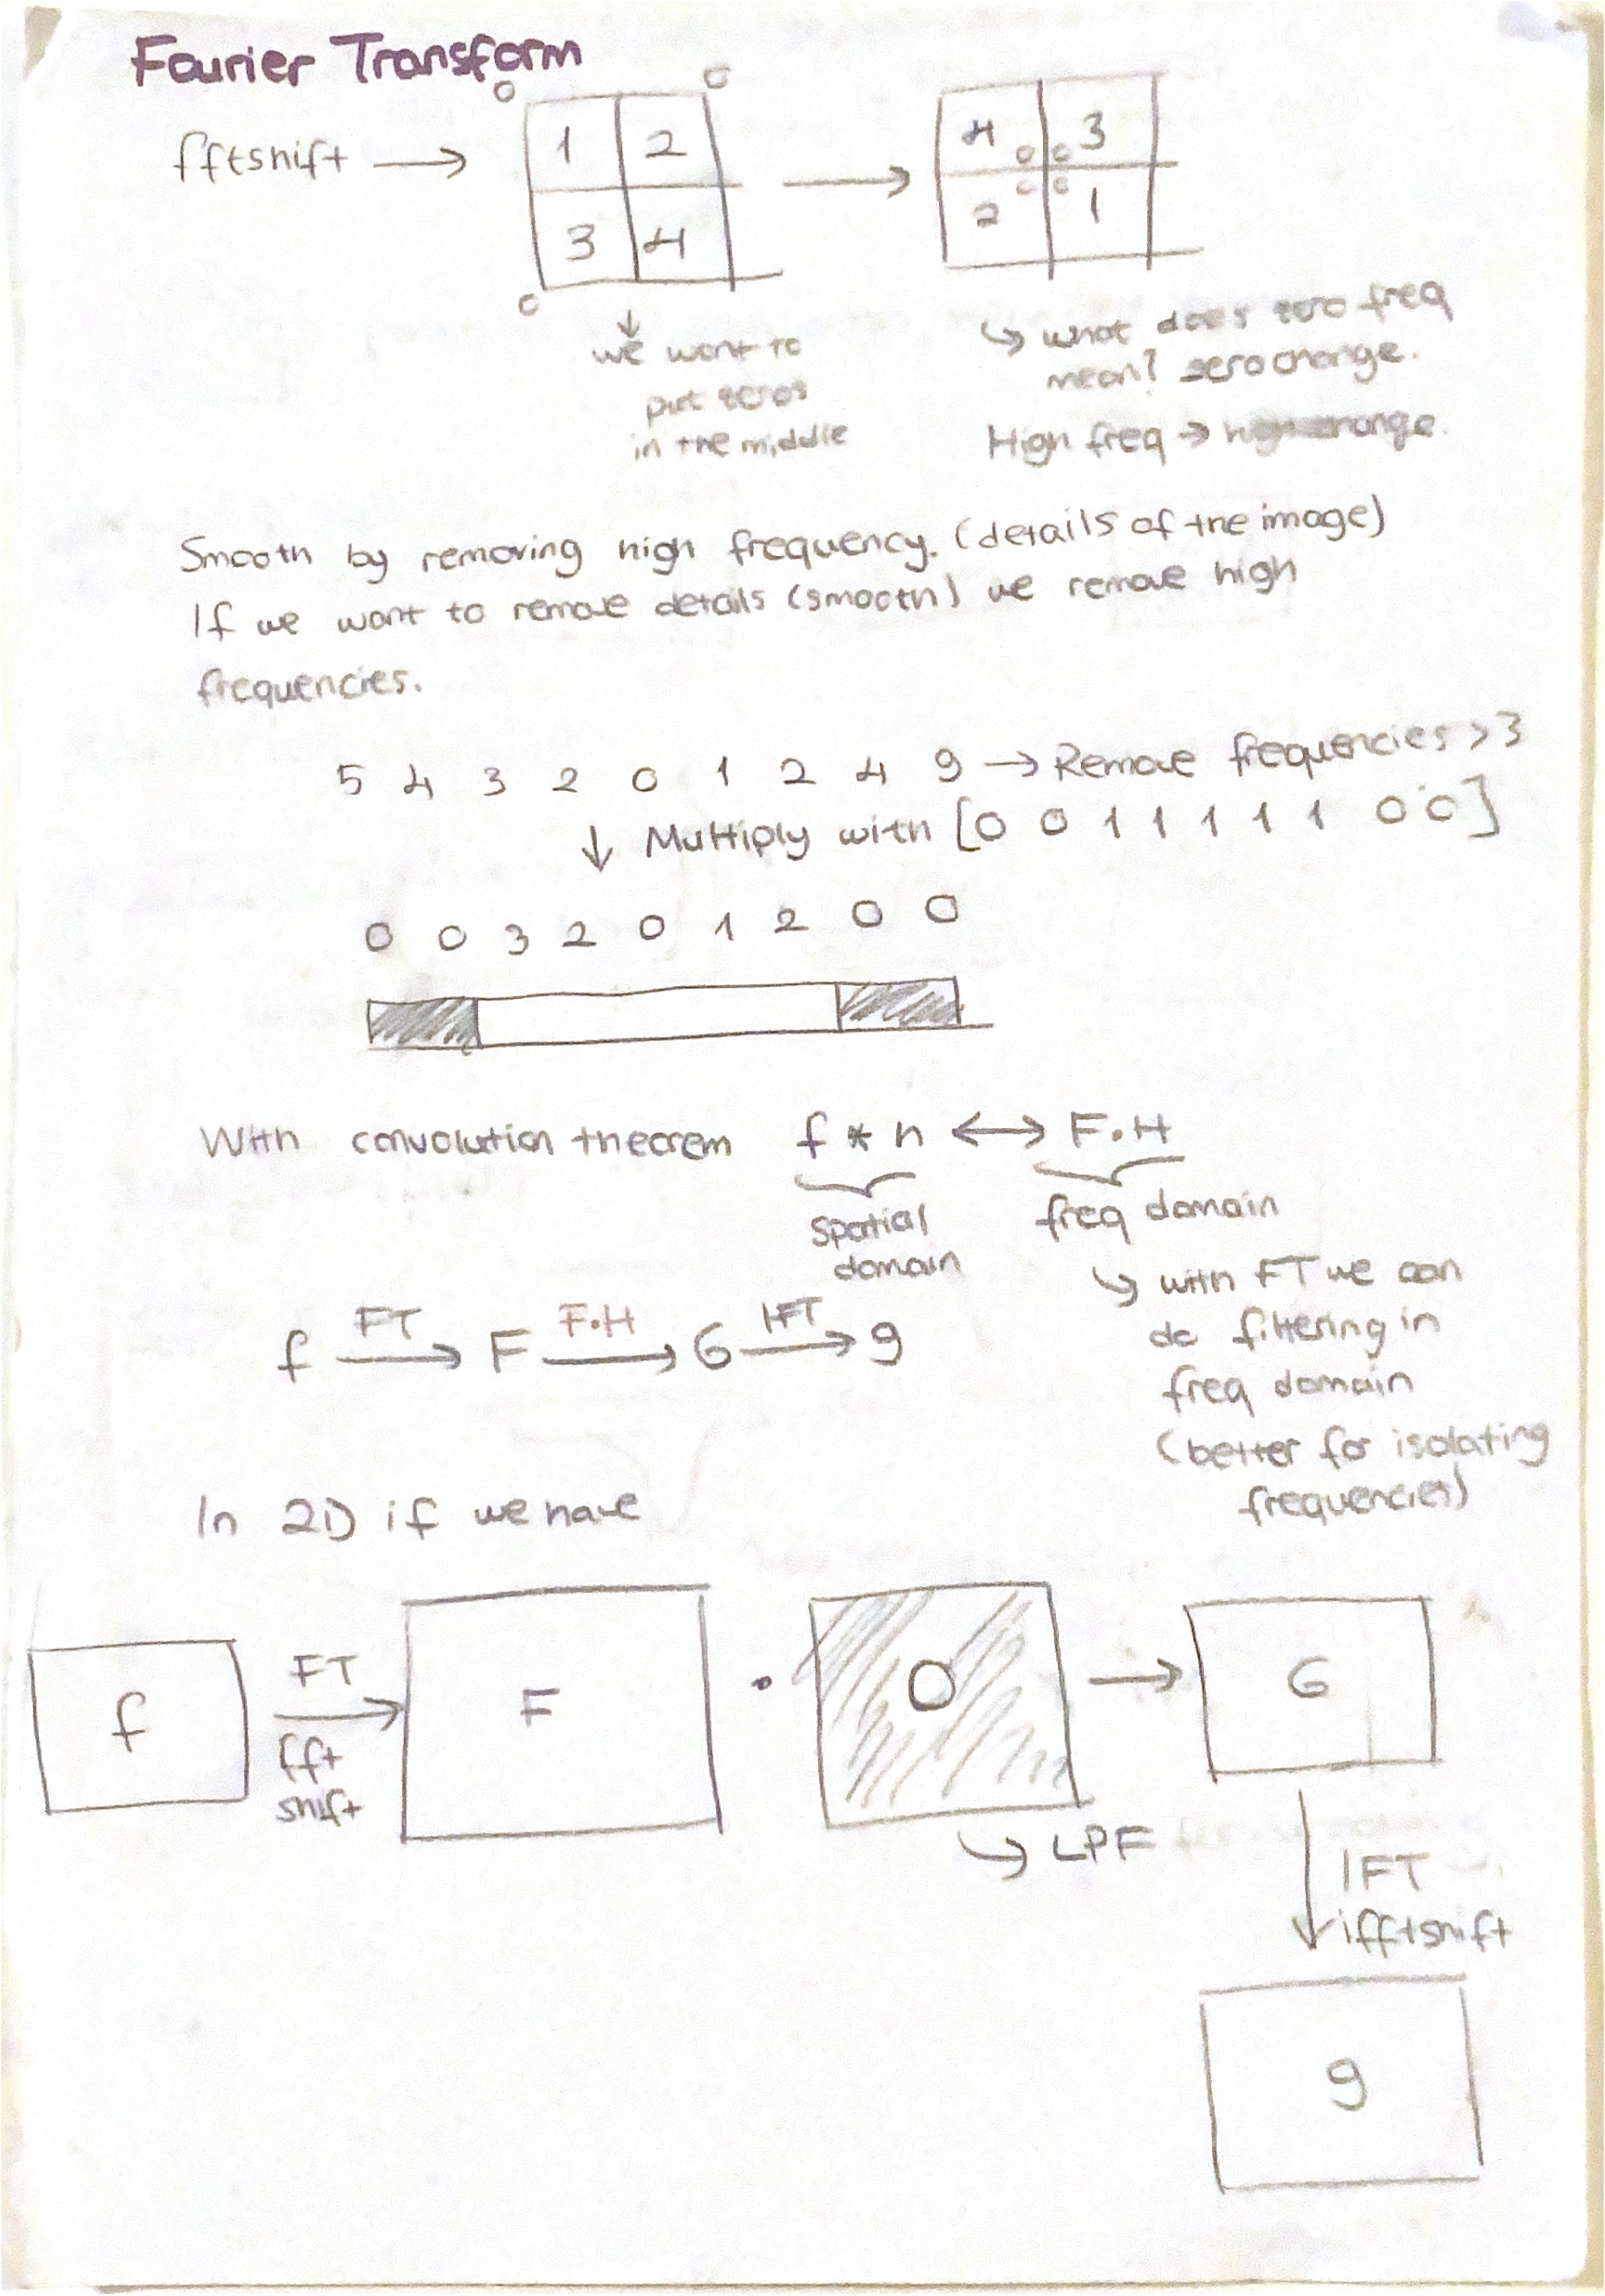 Fourier Transform
fftshift →
1 2
3 4
→
4 3
2 1
we want to
put zeros
in the middle
what does zero freq
mean? zero change.
High freq → high change.
Smooth by removing high frequency. (details of the image)
If we want to remove details (smooth) we remove high
frequencies.
5 4 3 2 0 1 2 4 9 → Remove frequencies > 3
↓ Multiply with [0 0 1 1 1 1 1 0 0]
0 0 3 2 0 1 2 0 0
With convolution theorem f * h ↔ F.H
spatial
domain
freq domain
with FT we can
do filtering in
freq domain
(better for isolating
frequencies)
FT F.H IFT
f → F → G → g
In 2D if we have
f
FT
fft
shift
F
.
→
LPF
G
IFT
ifftshift
g